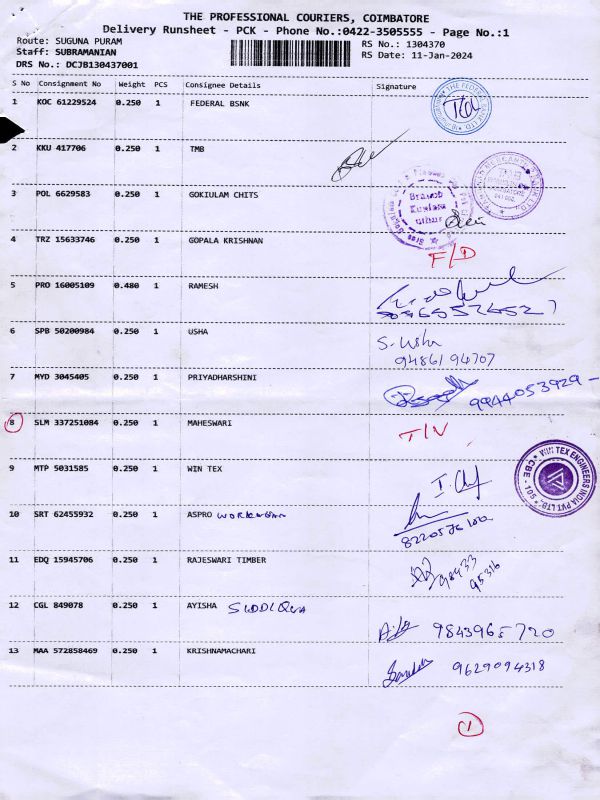 THE PROFESSIONAL COURIERS, COIMBATORE
Delivery Runsheet - PCK - Phone No.:0422-3505555 - Page No.:1
Route: SUGUNA PURAM
RS No.: 1304370
Staff: SUBRAMANIAN
RS Date: 11-Jan-2024
DRS No.: DCJB130437001
S No Consignment No Weight PCS Consignee Details Signature
1 KOC 61229524 0.250 1 FEDERAL BSNK
2 KKU 417706 0.250 1 TMB
3 POL 6629583 0.250 1 GOKIULAM CHITS
Branch
4 TRZ 15633746 0.250 1 GOPALA KRISHNAN F/D
5 PRO 16005109 0.480 1 RAMESH
6 SPB 50200984 0.250 1 USHA S. Usha
9486194707
7 MYD 3045405 0.250 1 PRIYADHARSHINI 9944053929
8 SLM 337251084 0.250 1 MAHESWARI
WIN TEX ENGINEERS INDIA PVT LTD. CBE - 105
9 MTP 5031585 0.250 1 WIN TEX
10 SRT 62455932 0.250 1 ASPRO
11 EDQ 15945706 0.250 1 RAJESWARI TIMBER 98433
95316
12 CGL 849078 0.250 1 AYISHA SIDDIQUA
9843965720
13 MAA 572858469 0.250 1 KRISHNAMACHARI 9629094318
1